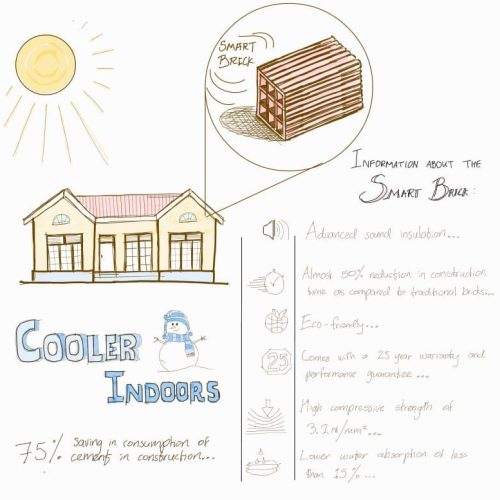 SMART
BRICK
INFORMATION ABOUT THE
SMART BRICK:
Advanced sound insulation...
Almost 50% reduction in construction
time as compared to traditional bricks...
Eco-friendly...
25
Comes with a 25 year warranty and
performance guarantee...
High compressive strength of
3.2 N/mm²...
Lower water absorption of less
than 15%...
COOLER
INDOORS
75% saving in consumption of
cement in construction...